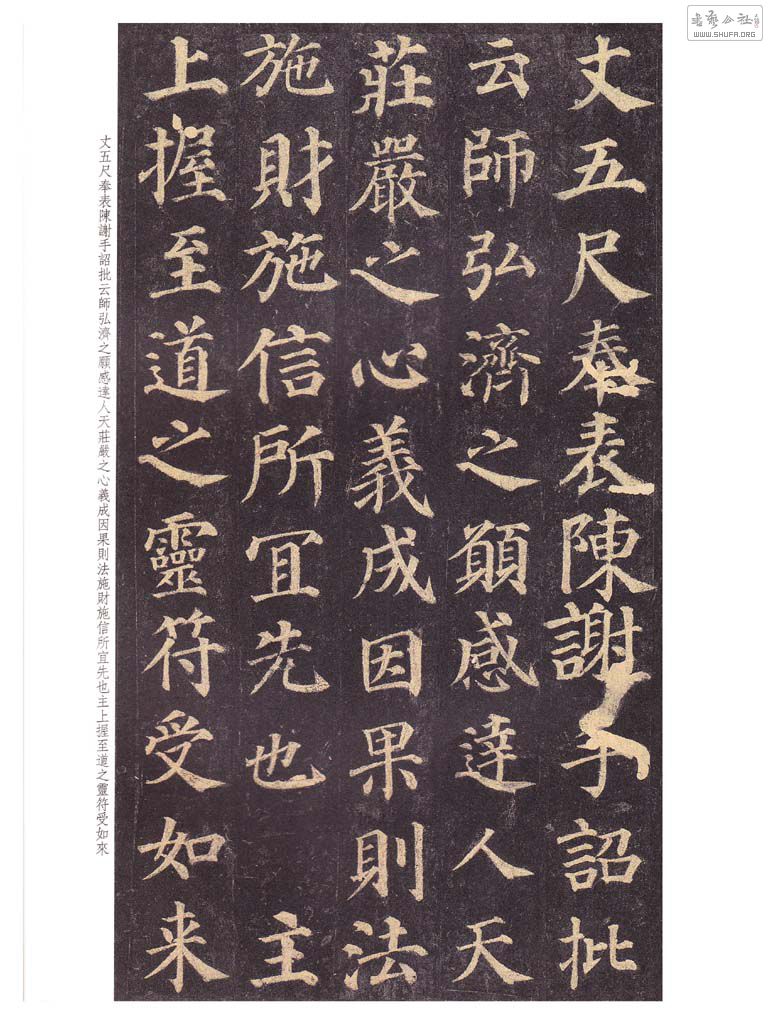 丈五尺奉表陳謝手詔批
云師弘濟之願感達人天
莊嚴之心義成因果則法
施財施信所宜先也主
上握至道之靈符受如来
丈五尺奉表陳謝手詔批云師弘濟之願感達人天莊嚴之心義成因果則法施財施信所宜先也主上握至道之靈符受如來
WWW.SHUFA.ORG